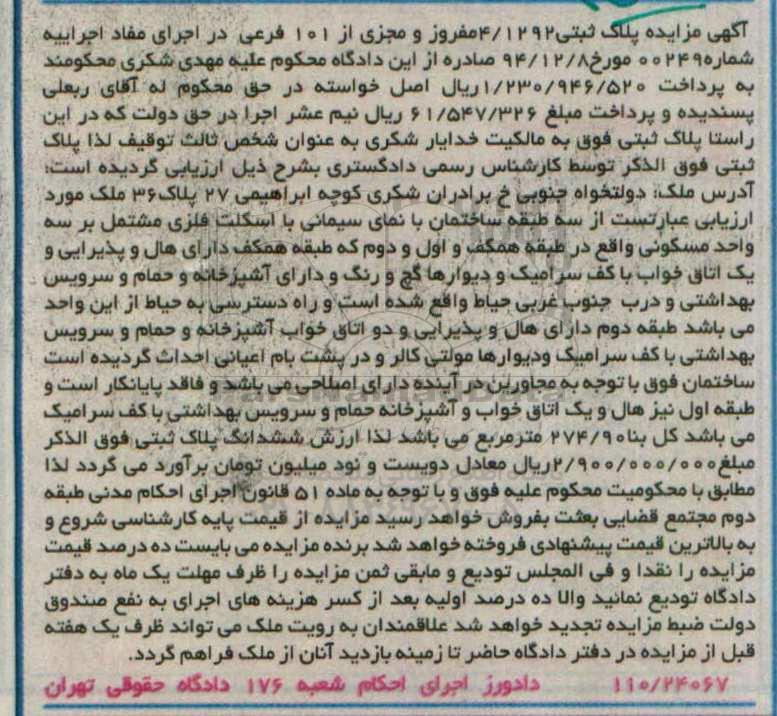 آگهی مزایده پلاک ثبتی۴/۱۲۹۲مفروز و مجزی از ۱۰۱ فرعی در اجرای مفاد اجراییه
شماره۰۰۲۴۹ مورخ۹۴/۱۲/۸ صادره از این دادگاه محکوم علیه مهدی شکری محکومند
به پرداخت ۱/۲۳۰/۹۴۶/۵۲۰ریال اصل خواسته در حق محکوم له آقای ربعلی
پسندیده و پرداخت مبلغ ۶۱/۵۴۷/۳۲۶ ریال نیم عشر اجرا در حق دولت که در این
راستا پلاک ثبتی فوق به مالکیت خدایار شکری به عنوان شخص ثالث توقیف لذا پلاک
ثبتی فوق الذکر توسط کارشناس رسمی دادگستری بشرح ذیل ارزیابی گردیده است:
آدرس ملک: دولتخواه جنوبی خ برادران شکری کوچه ابراهیمی ۲۷ پلاک۳۶ ملک مورد
ارزیابی عبارتست از سه طبقه ساختمان با نمای سیمانی با اسکلت فلزی مشتمل بر سه
واحد مسکونی واقع در طبقه همکف و اول و دوم که طبقه همکف دارای هال و پذیرایی و
یک اتاق خواب با کف سرامیک و دیوارها گچ و رنگ و دارای آشپزخانه و حمام و سرویس
بهداشتی و درب جنوب غربی حیاط واقع شده است و راه دسترسی به حیاط از این واحد
می باشد طبقه دوم دارای هال و پذیرایی و دو اتاق خواب آشپزخانه و حمام و سرویس
بهداشتی با کف سرامیک ودیوارها مولتی کالر و در پشت بام اعیانی احداث گردیده است
ساختمان فوق با توجه به مجاورین در آینده دارای اصلاحی می باشد و فاقد پایانکار است و
طبقه اول نیز هال و یک اتاق خواب و آشپزخانه حمام و سرویس بهداشتی با کف سرامیک
می باشد کل بنا۲۷۴/۹۰ مترمربع می باشد لذا ارزش ششدانگ پلاک ثبتی فوق الذکر
مبلغ۲/۹۰۰/۰۰۰/۰۰۰ریال معادل دویست و نود میلیون تومان برآورد می گردد لذا
مطابق با محکومیت محکوم علیه فوق و با توجه به ماده ۵۱ قانون اجرای احکام مدنی طبقه
دوم مجتمع قضایی بعثت بفروش خواهد رسید مزایده از قیمت پایه کارشناسی شروع و
به بالاترین قیمت پیشنهادی فروخته خواهد شد برنده مزایده می بایست ده درصد قیمت
مزایده را نقدا و فی المجلس تودیع و مابقی ثمن مزایده را ظرف مهلت یک ماه به دفتر
دادگاه تودیع نمائید والا ده درصد اولیه بعد از کسر هزینه های اجرای به نفع صندوق
دولت ضبط مزایده تجدید خواهد شد علاقمندان به رویت ملک می تواند ظرف یک هفته
قبل از مزایده در دفتر دادگاه حاضر تا زمینه بازدید آنان از ملک فراهم گردد.
۱۱۰/۲۴۰۶۷ دادورز اجرای احکام شعبه ۱۷۶ دادگاه حقوقی تهران